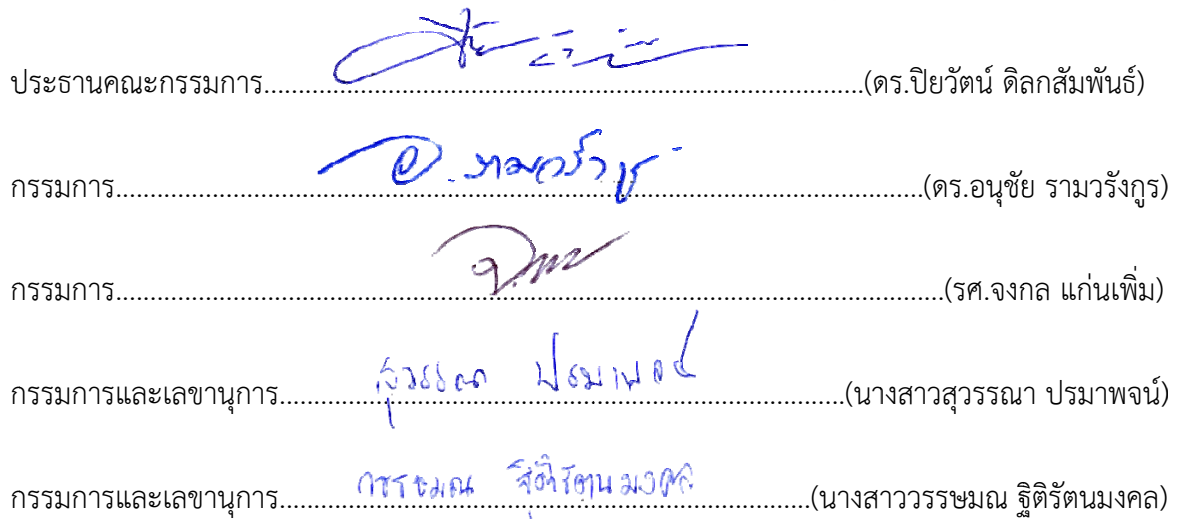 ประธานคณะกรรมการ..........(ดร.ปิยวัตน์ ดิลกสัมพันธ์)
กรรมการ..........อ. รามวรังกูร..........(ดร.อนุชัย รามวรังกูร)
กรรมการ..........(รศ.จงกล แก่นเพิ่ม)
กรรมการและเลขานุการ..........สุวรรณา ปรมาพจน์..........(นางสาวสุวรรณา ปรมาพจน์)
กรรมการและเลขานุการ..........วรรษมณ ฐิติรัตนมงคล..........(นางสาววรรษมณ ฐิติรัตนมงคล)